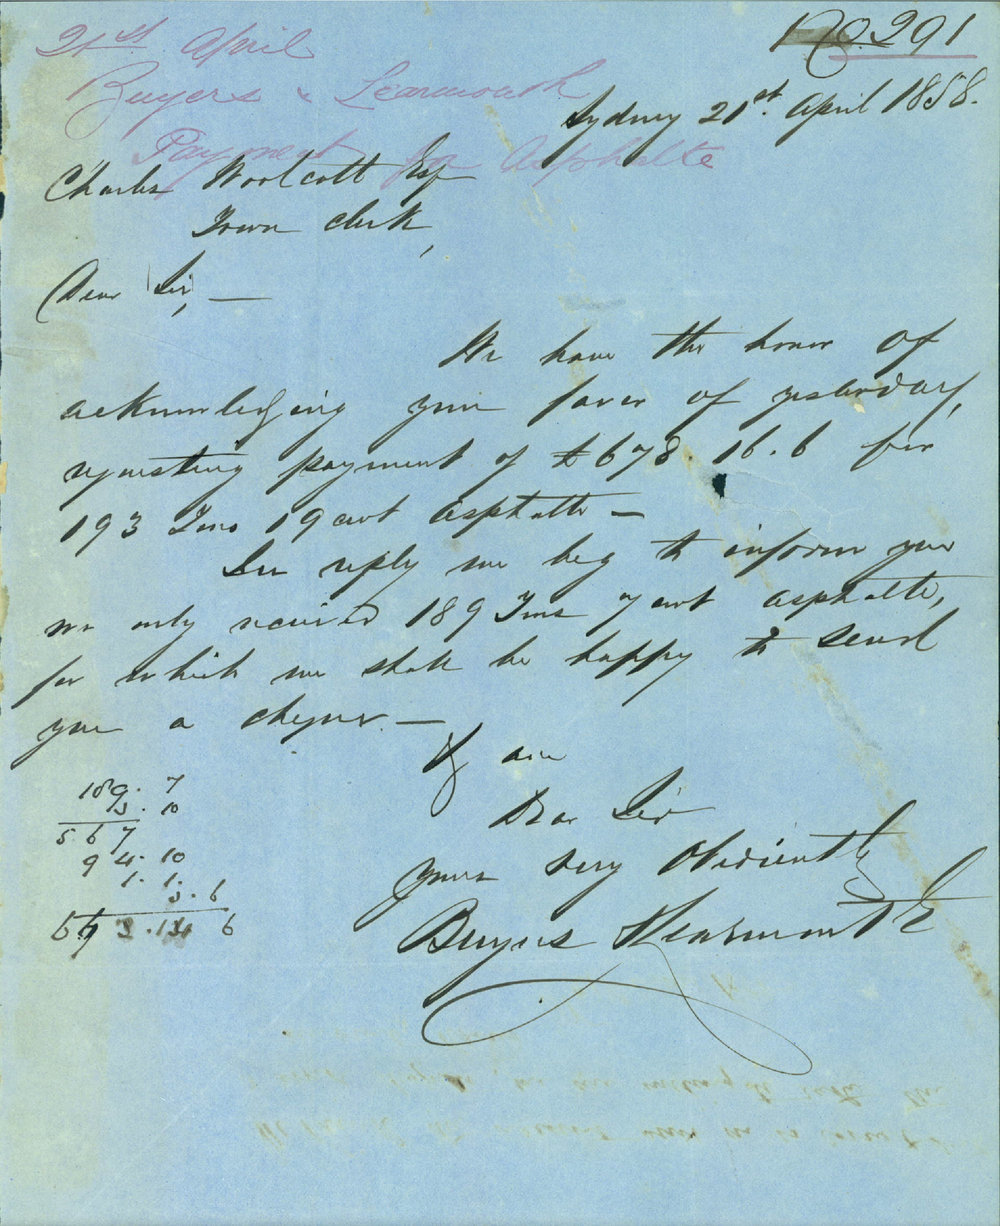 No. 291
21st April
Buyers & Learmonth
Payment for Asphalte
Sydney 21st. April 1858.
Charles Woolcott Esq
Town Clerk,
Dear Sir, —
We have the honor of
acknowledging your favor of yesterday,
requesting payment of £678.16.6 for
193 Tons 19 cwt Asphalte —
In reply we beg to inform you
we only received 189 Tons 7 cwt asphalte,
for which we shall be happy to send
you a cheque —
We are
Dear Sir
Yours very Obediently
Buyers & Learmonth
189. 7
3. 10
5 6 7
9 4. 10
1. 1.
3. 6
6